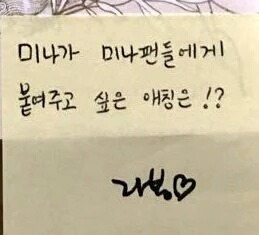 미나가 미나팬들에게
붙여주고 싶은 애칭은!?
라봉♡